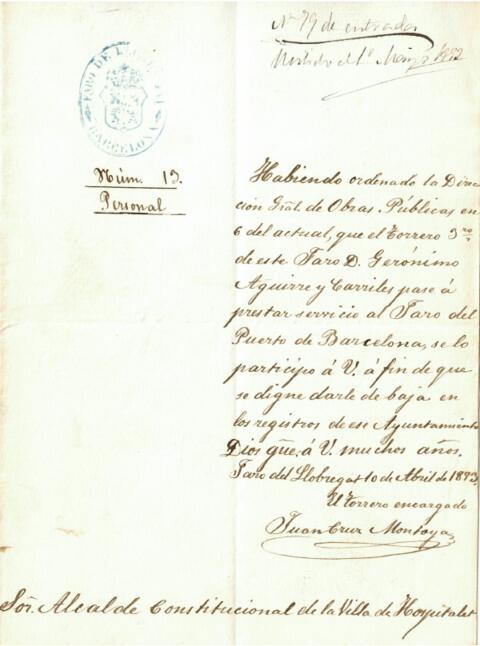 Nº 79 de entrada
1º
FARO DE LLOBREGAT
BARCELONA
Núm. 13.
Personal
Habiendo ordenado la Direc
cion Gral. de Obras Públicas en
6 del actual, que el torrero 3ro.
de este Faro D. Gerónimo
Aguirre y Carriles pase á
prestar servicio al Faro del
Puerto de Barcelona, se lo
participo á V. á fin de que
se digne darle de baja en
los registros de ese Ayuntamiento
Dios gue. á V. muchos años.
Faro del Llobregat 10 de Abril de 1893.
El torrero encargado
Juan Cruz Montoya
Sor. Alcalde Constitucional de la Villa de Hospitalet